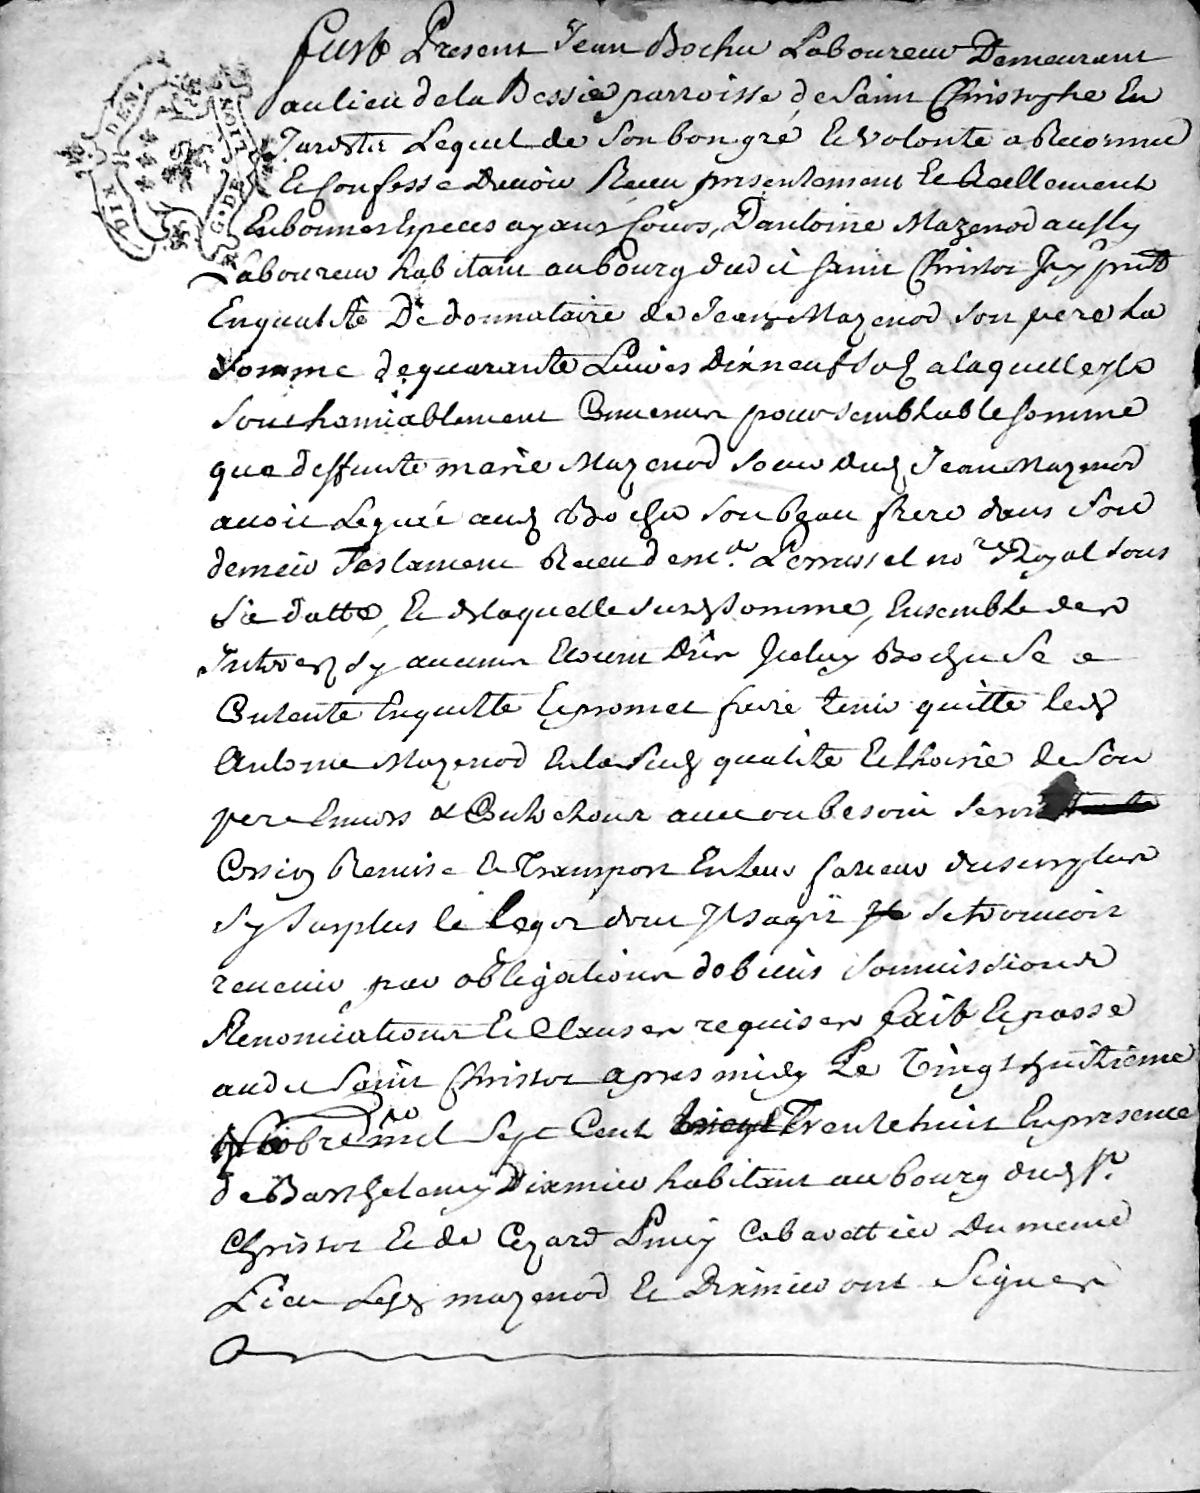 DIX DEN.
G. DE
Fust Present Jean Bochu Laboureur Demeurant
au lieu de la Bessie parroisse de Saint Christophe En
Jarestz Lequel de Son bon gré et volonté a Reconnu
Et Confesse Dauoir Receu presentement Et Reellement
En bonnes Especes ayant Cours, Dantoine Mazenod aussy
Laboureur habitant au bourg dudit Saint Christot Icy pnt
En qualité De donnataire de Jean Mazenod Son pere La
Somme de quarante Liures Dixneuf Solz a laquelle ylz
Sont hamiablement Conuenus pour Semblable Somme
que deffunte marie Mazenod Soeur dud Jean Mazenod
auoit Legué aud Bochu Son beau frere dans Son
dernier Testament Receu de me. Perrussel nore Royal Sous
Sa datte, Et de laquelle Susd Somme, Ensemble des
Interestz Sy aucuns Estoint Dûs Iceluy Bochu Se
Contente En quitte Et promet faire tenir quitte led
Antoine Mazenod En la Sud qualité Et lhoirie de Son
pere Enuers & Contre tous auec ou besoin Seroit
Cession Remise Et Transport En leur faueur du Surplus
Sy Surplus le legat dont Il Sagit Se trouuoit
reuenir par obligations debuës Soumissions
Renonciations Et Clauses requises fait Et passé
audit Saint Christot apres midy Le Vingt huitième
mil Sept Cent Trente huit En presence
de Barthelemy Dixmier habitant au bourg dud St.
Christot Et de Cezard Cabarettier Du meme
Lieu Lesd mazenod Et Dixmier ont Signes